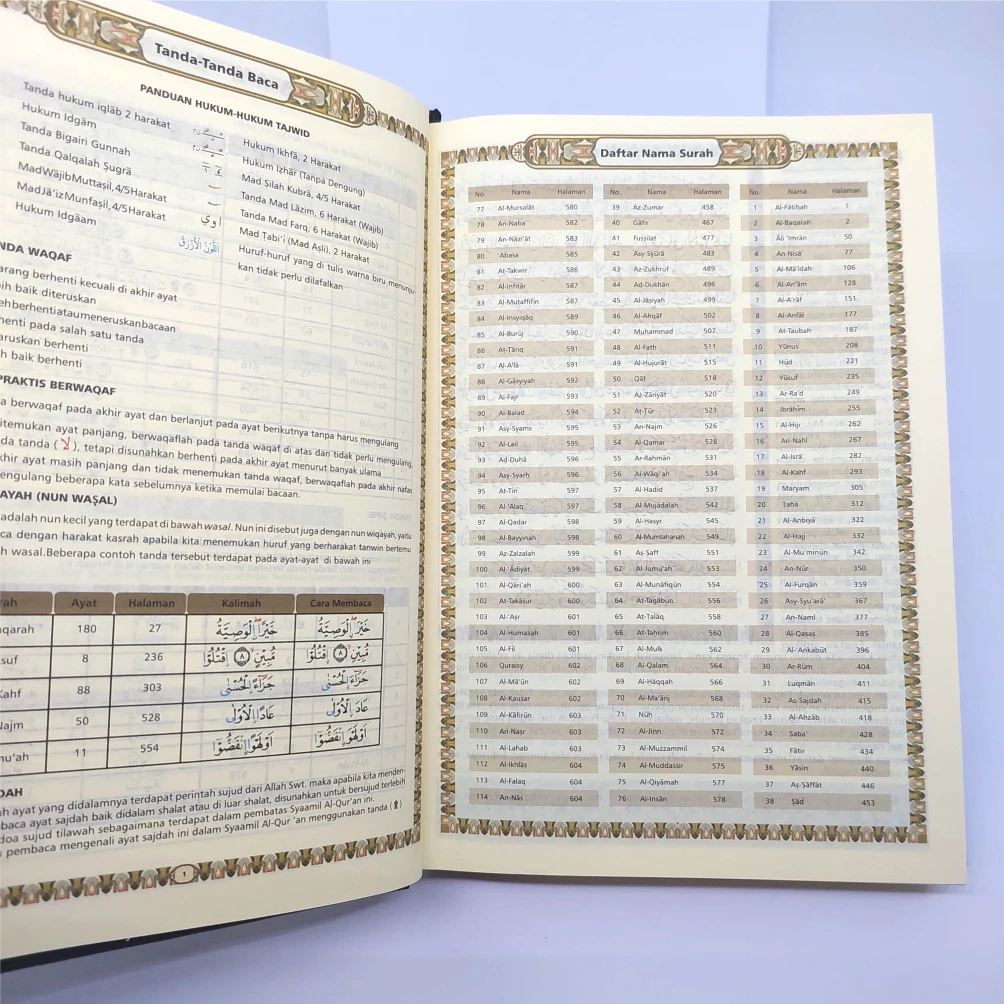 Tanda-Tanda Baca
PANDUAN HUKUM-HUKUM TAJWID
Tanda hukum iqlāb 2 harakat
Hukum Idgām
Tanda Bigairi Gunnah
Tanda Qalqalah Ṣugrā
MadWājibMuttaṣil,4/5Harakat
MadJā'izMunfaṣil,4/5Harakat
Hukum Idgāam
اوي
Hukum Ikhfā, 2 Harakat
Hukum Izhār (Tanpa Dengung)
Mad Ṣilah Kubrā, 4/5 Harakat
Tanda Mad Lāzim, 6 Harakat (Wajib)
Tanda Mad Farq, 6 Harakat (Wajib)
Mad Ṭabi'i (Mad Asli), 2 Harakat
Huruf-huruf yang di tulis warna biru menunju-
kan tidak perlu dilafalkan
NDA WAQAF
arang berhenti kecuali di akhir ayat
ih baik diteruskan
ehberhentiataumeneruskanbacaan
henti pada salah satu tanda
aruskan berhenti
h baik berhenti
PRAKTIS BERWAQAF
a berwaqaf pada akhir ayat dan berlanjut pada ayat berikutnya tanpa harus mengulang
itemukan ayat panjang, berwaqaflah pada tanda waqaf di atas dan tidak perlu mengulang,
da tanda (لا), tetapi disunahkan berhenti pada akhir ayat menurut banyak ulama
khir ayat masih panjang dan tidak menemukan tanda waqaf, berwaqaflah pada akhir nafas
engulang beberapa kata sebelumnya ketika memulai bacaan.
AYAH (NUN WAṢAL)
adalah nun kecil yang terdapat di bawah wasal. Nun ini disebut juga dengan nun wiqayah, yaitu
ca dengan harakat kasrah apabila kita menemukan huruf yang berharakat tanwin bertemu
h wasal.Beberapa contoh tanda tersebut terdapat pada ayat-ayat di bawah ini
rah Ayat Halaman Kalimah Cara Membaca
qarah 180 27 خَيْرًا ۨالْوَصِيَّةُ خَيْرَاۨ الْوَصِيَّةُ
suf 8 236 مُّبِيْنٍ ۨ ۙ ٨ اقْتُلُوْا مُّبِيْنٍ ۨ ۙ ٨ اقْتُلُوْا
Kahf 88 303 جَزَاۤءً ۨالْحُسْنٰى جَزَاۤءَ ۨالْحُسْنٰى
Najm 50 528 عَادًا ۨالْاُوْلٰى عَادَ ۨالْاُوْلٰى
mu'ah 11 554 اَوْ لَهْوًا ۨانْفَضُّوْٓا اَوْ لَهْوَ ۨانْفَضُّوْٓا
DAH
h ayat yang didalamnya terdapat perintah sujud dari Allah Swt. maka apabila kita menden-
baca ayat sajdah baik didalam shalat atau di luar shalat, disunahkan untuk bersujud terlebih
doa sujud tilawah sebagaimana terdapat dalam pembatas Syaamil Al-Qur'an ini.
u pembaca mengenali ayat sajdah ini dalam Syaamil Al-Qur 'an menggunakan tanda (۩)
1
Daftar Nama Surah
No. Nama Halaman
77 Al-Mursalāt 580
78 An-Naba' 582
79 An-Nāzi'āt 583
80 'Abasa 585
81 At-Takwīr 586
82 Al-Infiṭār 587
83 Al-Muṭaffifīn 587
84 Al-Insyiqāq 589
85 Al-Burūj 590
86 Aṭ-Ṭāriq 591
87 Al-A'lā 591
88 Al-Gāsyiyah 592
89 Al-Fajr 593
90 Al-Balad 594
91 Asy-Syams 595
92 Al-Lail 595
93 Aḍ-Ḍuḥā 596
94 Asy-Syarḥ 596
95 At-Tīn 597
96 Al-'Alaq 597
97 Al-Qadar 598
98 Al-Bayyinah 598
99 Az-Zalzalah 599
100 Al-'Ādiyāt 599
101 Al-Qāri'ah 600
102 At-Takāsur 600
103 Al-'Aṣr 601
104 Al-Humazah 601
105 Al-Fīl 601
106 Quraisy 602
107 Al-Mā'ūn 602
108 Al-Kausar 602
109 Al-Kāfirūn 603
110 An-Naṣr 603
111 Al-Lahab 603
112 Al-Ikhlāṣ 604
113 Al-Falaq 604
114 An-Nās 604
No. Nama Halaman
39 Az-Zumar 458
40 Gāfir 467
41 Fuṣṣilat 477
42 Asy-Syūrā 483
43 Az-Zukhruf 489
44 Ad-Dukhān 496
45 Al-Jāsiyah 499
46 Al-Aḥqāf 502
47 Muḥammad 507
48 Al-Fatḥ 511
49 Al-Ḥujurāt 515
50 Qāf 518
51 Aż-Żāriyāt 520
52 Aṭ-Ṭūr 523
53 An-Najm 526
54 Al-Qamar 528
55 Ar-Raḥmān 531
56 Al-Wāqi'ah 534
57 Al-Ḥadīd 537
58 Al-Mujādalah 542
59 Al-Ḥasyr 545
60 Al-Mumtaḥanah 549
61 Aṣ-Ṣaff 551
62 Al-Jumu'ah 553
63 Al-Munāfiqūn 554
64 At-Tagābūn 556
65 Aṭ-Ṭalāq 558
66 At-Taḥrīm 560
67 Al-Mulk 562
68 Al-Qalam 564
69 Al-Ḥāqqah 566
70 Al-Ma'ārij 568
71 Nūḥ 570
72 Al-Jinn 572
73 Al-Muzzammil 574
74 Al-Muddassir 575
75 Al-Qiyāmah 577
76 Al-Insān 578
No. Nama Halaman
1 Al-Fātiḥah 1
2 Al-Baqarah 2
3 Āli 'Imrān 50
4 An-Nisā' 77
5 Al-Mā'idah 106
6 Al-An'ām 128
7 Al-A'rāf 151
8 Al-Anfāl 177
9 At-Taubah 187
10 Yūnus 208
11 Hūd 221
12 Yūsuf 235
13 Ar-Ra'd 249
14 Ibrāhīm 255
15 Al-Ḥijr 262
16 An-Naḥl 267
17 Al-Isrā' 282
18 Al-Kahf 293
19 Maryam 305
20 Ṭāhā 312
21 Al-Anbiyā' 322
22 Al-Ḥajj 332
23 Al-Mu'minūn 342
24 An-Nūr 350
25 Al-Furqān 359
26 Asy-Syu'arā' 367
27 An-Naml 377
28 Al-Qaṣaṣ 385
29 Al-'Ankabūt 396
30 Ar-Rūm 404
31 Luqmān 411
32 As-Sajdah 415
33 Al-Aḥzāb 418
34 Saba' 428
35 Fāṭir 434
36 Yāsīn 440
37 Aṣ-Ṣāffāt 446
38 Ṣād 453